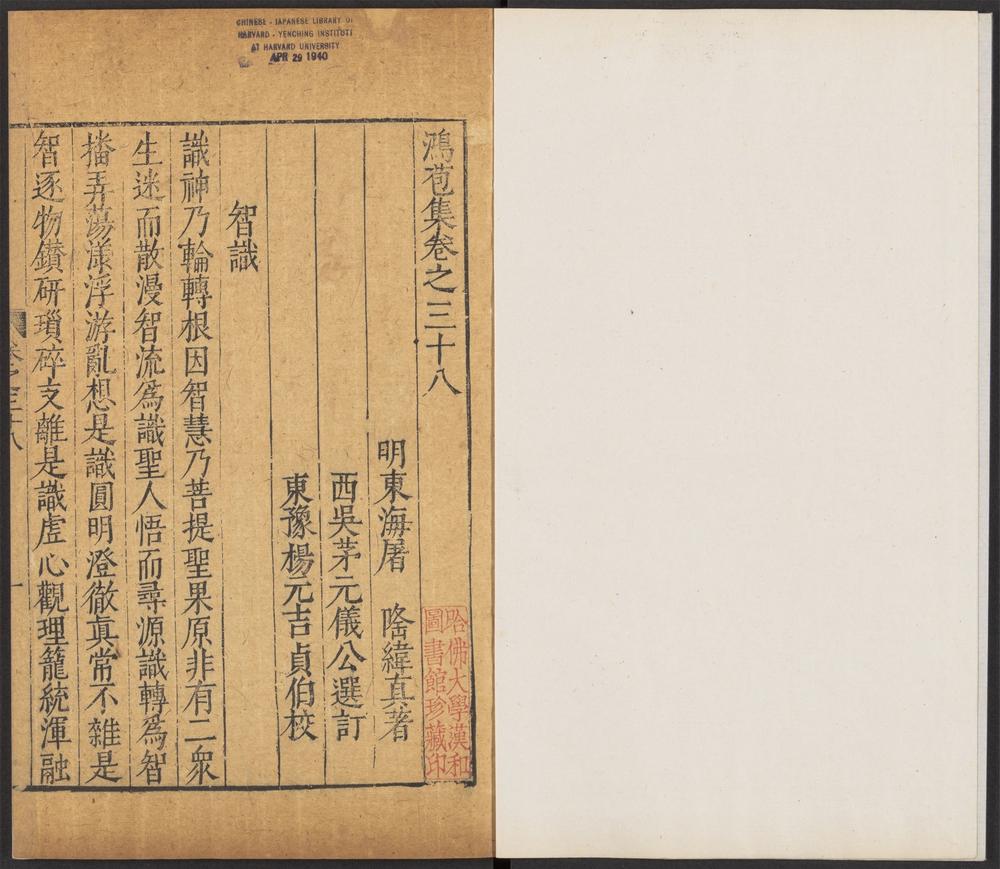 CHINESE - JAPANESE LIBRARY OF
HARVARD - YENCHING INSTITUTE
AT HARVARD UNIVERSITY
APR 29 1940
鴻苞集卷之三十八
明東海屠　隆緯真著
西吳茅元儀公選訂
東豫楊元吉貞伯校
智識
識神乃輪轉根因智慧乃菩提聖果原非有二衆
生迷而散漫智流爲識聖人悟而尋源識轉爲智
播弄蕩漾浮游亂想是識圓明澄徹眞常不雜是
智逐物鑚研瑣碎支離是識虛心觀理籠統渾融
卷之三十八
一
哈佛大學漢和
圖書館珍藏印